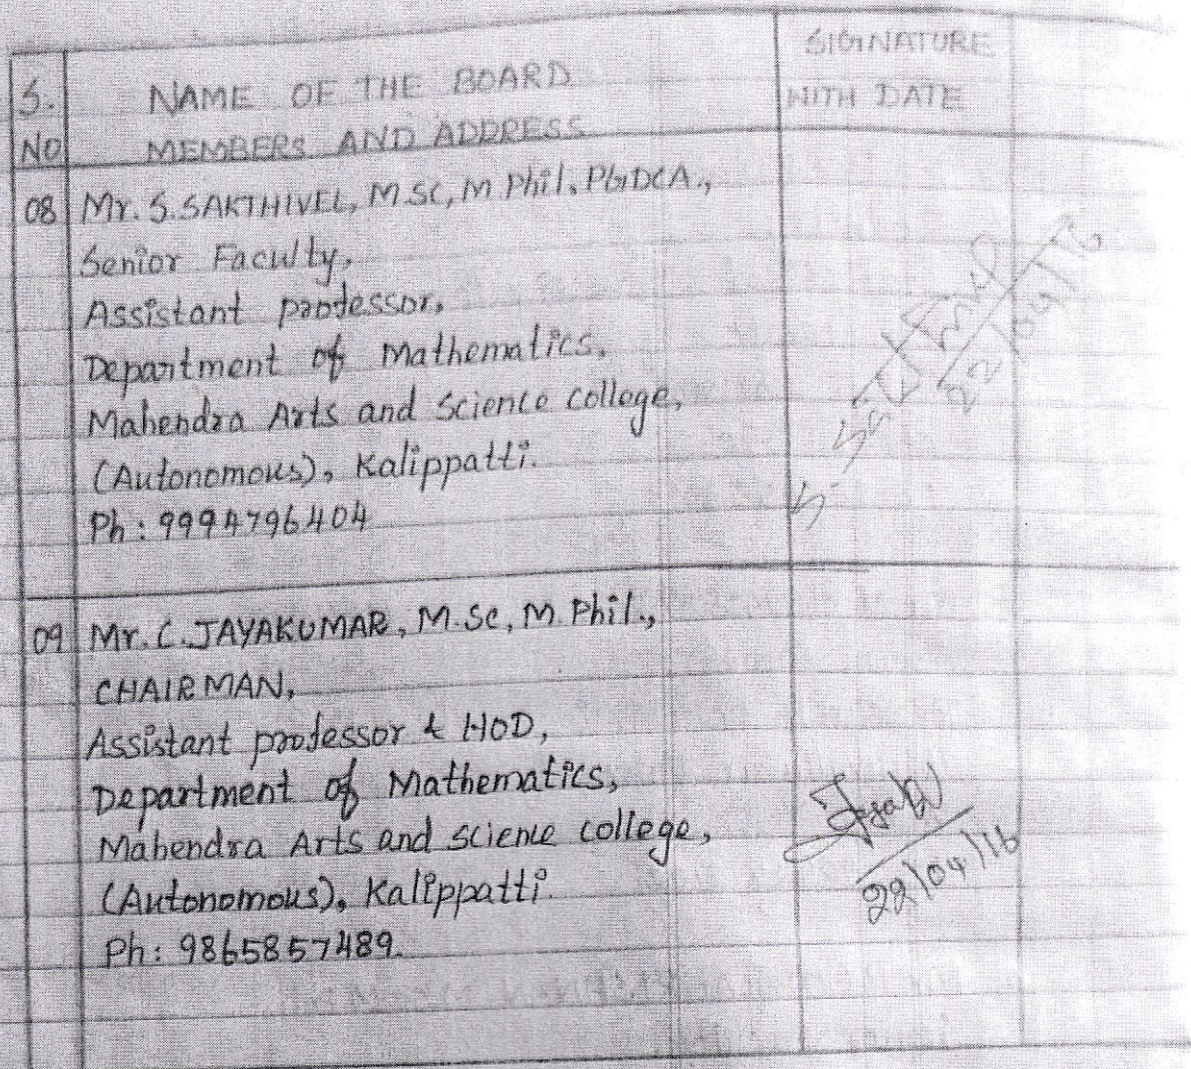 S. NO
NAME OF THE BOARD MEMBERS AND ADDRESS
SIGNATURE WITH DATE
08
Mr. S. SAKTHIVEL, M.Sc, M.Phil., PGDCA.,
Senior Faculty,
Assistant professor,
Department of Mathematics,
Mahendra Arts and Science college,
(Autonomous), Kalippatti.
Ph: 9994796404
S. Sakthivel
22/04/16
09
Mr. C. JAYAKUMAR, M.Sc, M.Phil.,
CHAIRMAN,
Assistant professor & HOD,
Department of Mathematics,
Mahendra Arts and Science college,
(Autonomous), Kalippatti.
Ph: 9865857489.
22/04/16